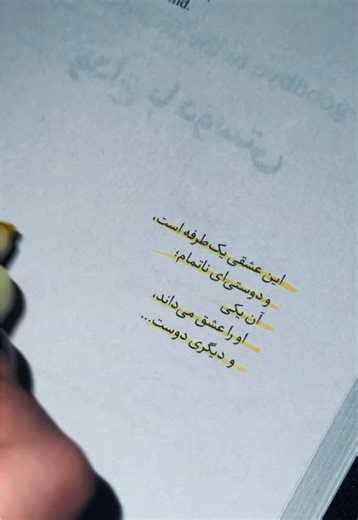 nd.
این عشقی یک‌طرفه است،
و دوستی‌ای ناتمام؛
آن یکی
او را عشق می‌داند،
و دیگری دوست...